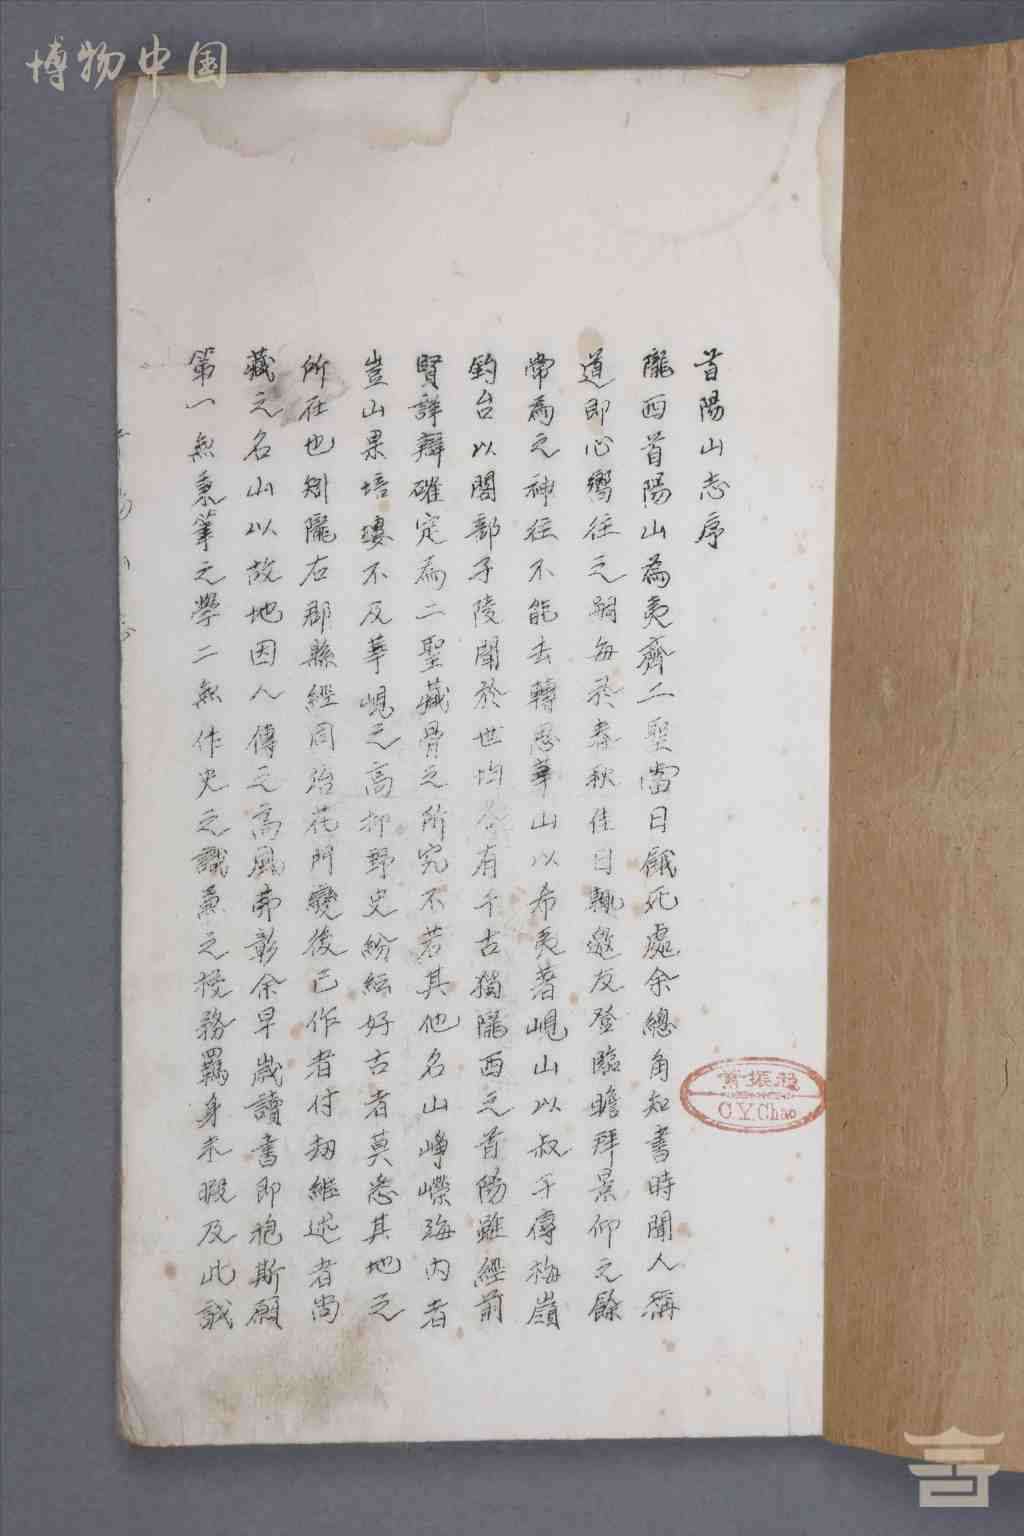 博物中国
首陽山志序
隴西首陽山為夷齊二聖當日餓死處余總角知書時聞人稱
道即心嚮往之嗣每於春秋佳日輒邀友登臨瞻拜景仰之餘
常為之神往不能去轉思華山以希夷著峴山以叔子傳梅嶺
釣台以閣部子陵聞於世均各有千古獨隴西之首陽雖經前
賢詳辯確定為二聖藏骨之所究不若其他名山崢嶸海內者
豈山果培塿不及華峴之高抑野史紛紜好古者莫悉其地之
所在也矧隴右郡縣經同治花門變後已作者付劫繼述者尚
藏之名山以故地因人傳之高風弗彰余早歲讀書即抱斯願
第一無秉筆之學二無作史之識兼之校務羈身未暇及此誠
黄振趙
C.Y.Chao